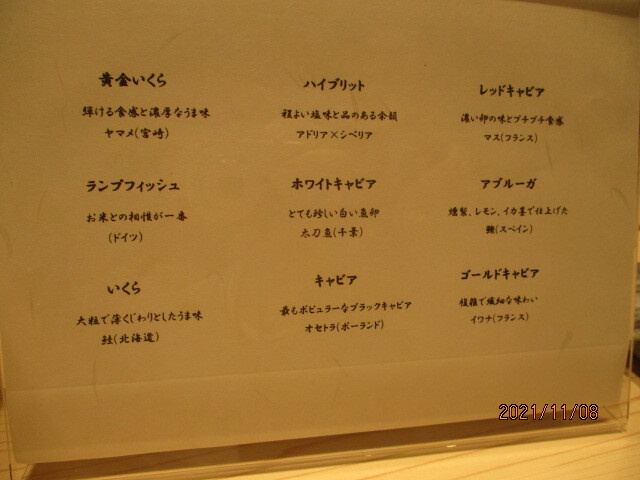 黄金いくら
弾ける食感と濃厚なうま味
ヤマメ(宮崎)
ハイブリット
程よい塩味と品のある余韻
アドリア×シベリア
レッドキャビア
濃い卵の味とプチプチ食感
マス(フランス)
ランプフィッシュ
お米との相性が一番
(ドイツ)
ホワイトキャビア
とても珍しい白い魚卵
太刀魚(千葉)
アブルーガ
燻製、レモン、イカ墨で仕上げた
鰊(スペイン)
いくら
大粒で薄くじわりとしたうま味
鮭(北海道)
キャビア
最もポピュラーなブラックキャビア
オセトラ(ポーランド)
ゴールドキャビア
複雑で繊細な味わい
イワナ(フランス)
2021/11/08